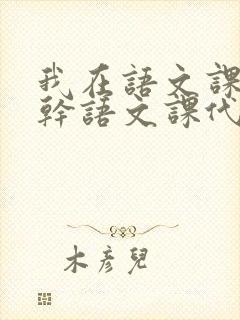 我在語文課
幹語文課代
木彥兒